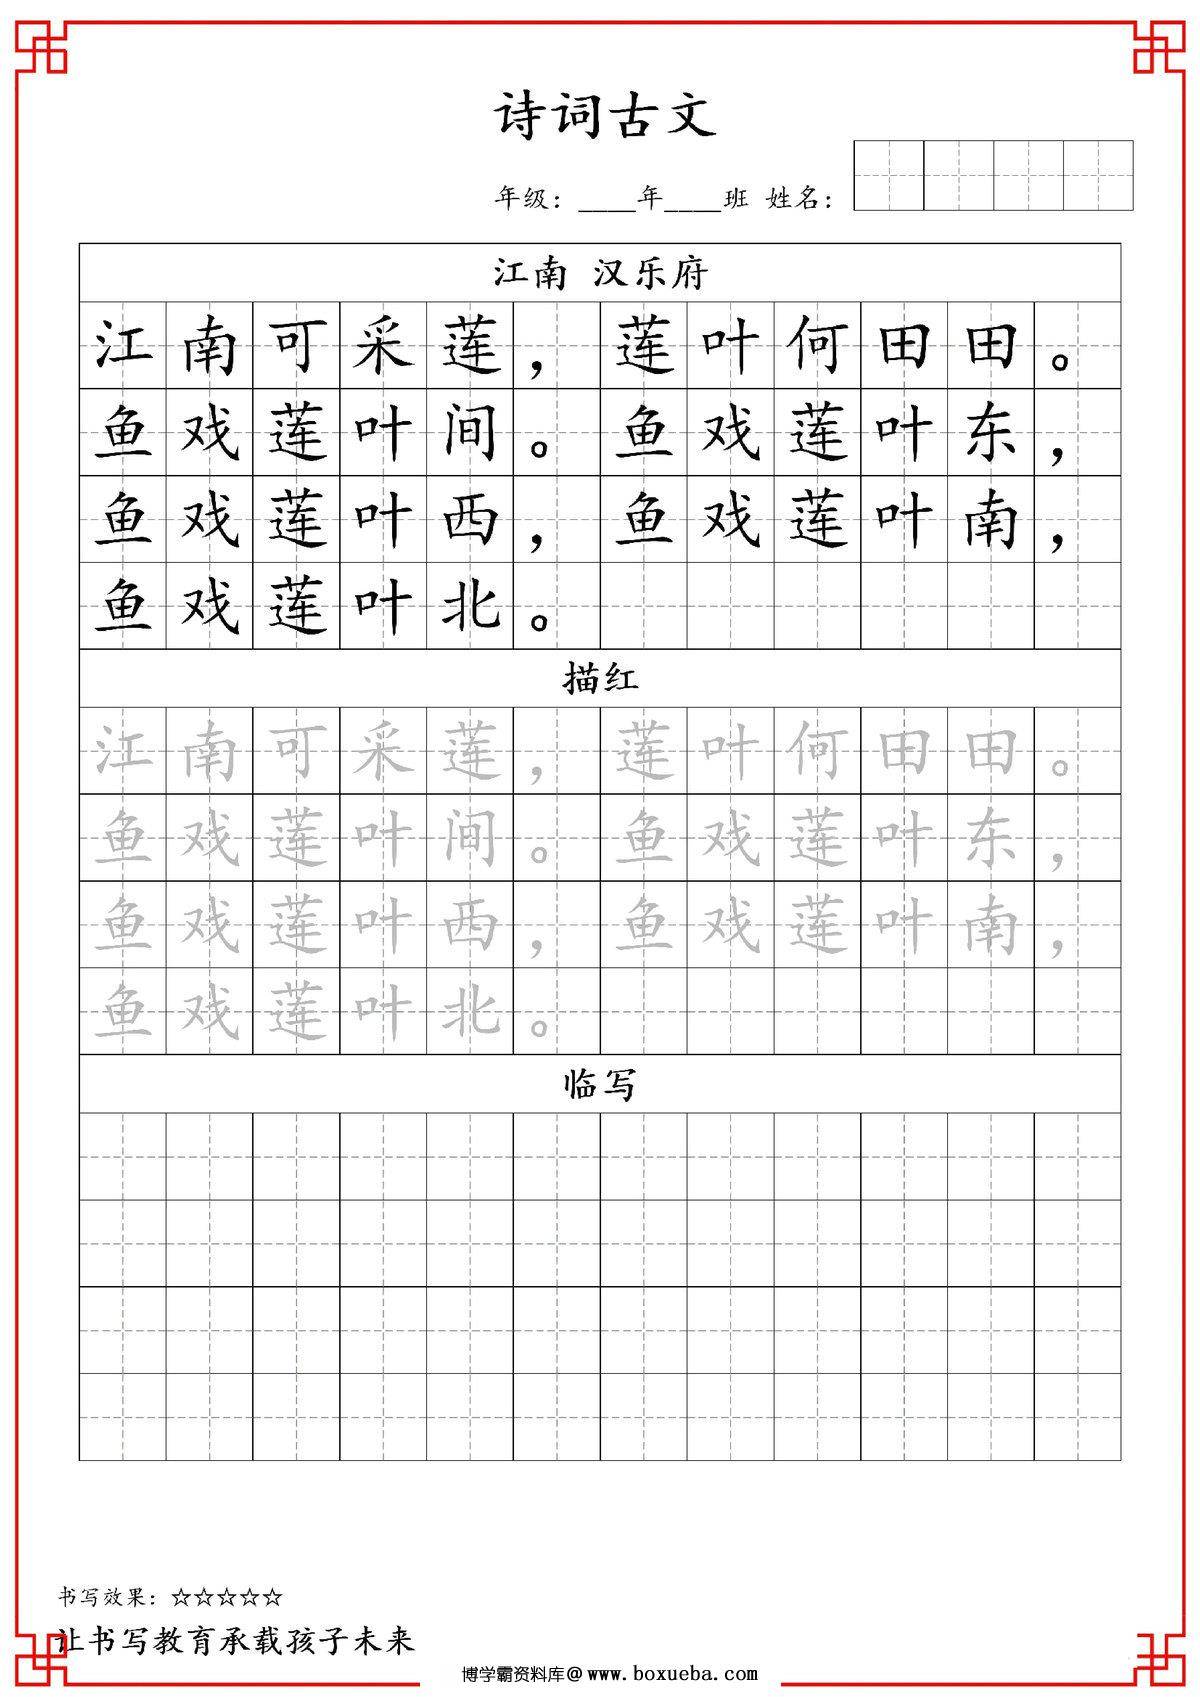 诗词古文
年级：____年____班 姓名：
江南 汉乐府
江南可采莲，莲叶何田田。
鱼戏莲叶间。鱼戏莲叶东，
鱼戏莲叶西，鱼戏莲叶南，
鱼戏莲叶北。
描红
江南可采莲，莲叶何田田。
鱼戏莲叶间。鱼戏莲叶东，
鱼戏莲叶西，鱼戏莲叶南，
鱼戏莲叶北。
临写
书写效果：☆☆☆☆☆
让书写教育承载孩子未来
博学霸资料库@www.boxueba.com